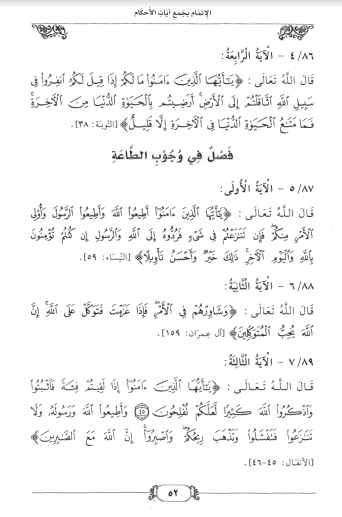 الإتمام بجمع آيات الأحكام
٤/٨٦ - الْآيَةُ الرَّابِعَةُ:
قَالَ اللَّهُ تَعَالَى: ﴿يَٰٓأَيُّهَا ٱلَّذِينَ ءَامَنُوا۟ مَا لَكُمْ إِذَا قِيلَ لَكُمُ ٱنفِرُوا۟ فِى
سَبِيلِ ٱللَّهِ ٱثَّاقَلْتُمْ إِلَى ٱلْأَرْضِ ۚ أَرَضِيتُم بِٱلْحَيَوٰةِ ٱلدُّنْيَا مِنَ ٱلْءَاخِرَةِ ۚ
فَمَا مَتَٰعُ ٱلْحَيَوٰةِ ٱلدُّنْيَا فِى ٱلْءَاخِرَةِ إِلَّا قَلِيلٌ﴾ [التَّوْبَة: ٣٨].
فَصْلٌ فِي وُجُوبِ الطَّاعَةِ
٥/٨٧ - الْآيَةُ الْأُولَى:
قَالَ اللَّهُ تَعَالَى: ﴿يَٰٓأَيُّهَا ٱلَّذِينَ ءَامَنُوٓا۟ أَطِيعُوا۟ ٱللَّهَ وَأَطِيعُوا۟ ٱلرَّسُولَ وَأُو۟لِى
ٱلْأَمْرِ مِنكُمْ ۖ فَإِن تَنَٰزَعْتُمْ فِى شَىْءٍ فَرُدُّوهُ إِلَى ٱللَّهِ وَٱلرَّسُولِ إِن كُنتُمْ تُؤْمِنُونَ
بِٱللَّهِ وَٱلْيَوْمِ ٱلْءَاخِرِ ۚ ذَٰلِكَ خَيْرٌ وَأَحْسَنُ تَأْوِيلًا﴾ [النِّسَاء: ٥٩].
٦/٨٨ - الْآيَةُ الثَّانِيَةُ:
قَالَ اللَّهُ تَعَالَى: ﴿وَشَاوِرْهُمْ فِى ٱلْأَمْرِ ۖ فَإِذَا عَزَمْتَ فَتَوَكَّلْ عَلَى ٱللَّهِ ۚ إِنَّ
ٱللَّهَ يُحِبُّ ٱلْمُتَوَكِّلِينَ﴾ [آل عِمرَان: ١٥٩].
٧/٨٩ - الْآيَةُ الثَّالِثَةُ:
قَالَ اللَّهُ تَعَالَى: ﴿يَٰٓأَيُّهَا ٱلَّذِينَ ءَامَنُوٓا۟ إِذَا لَقِيتُمْ فِئَةً فَٱثْبُتُوا۟
وَٱذْكُرُوا۟ ٱللَّهَ كَثِيرًا لَّعَلَّكُمْ تُفْلِحُونَ ۝٤٥ وَأَطِيعُوا۟ ٱللَّهَ وَرَسُولَهُۥ وَلَا
تَنَٰزَعُوا۟ فَتَفْشَلُوا۟ وَتَذْهَبَ رِيحُكُمْ ۖ وَٱصْبِرُوٓا۟ ۚ إِنَّ ٱللَّهَ مَعَ ٱلصَّٰبِرِينَ﴾
[الأنفَال: ٤٥-٤٦].
٥٢